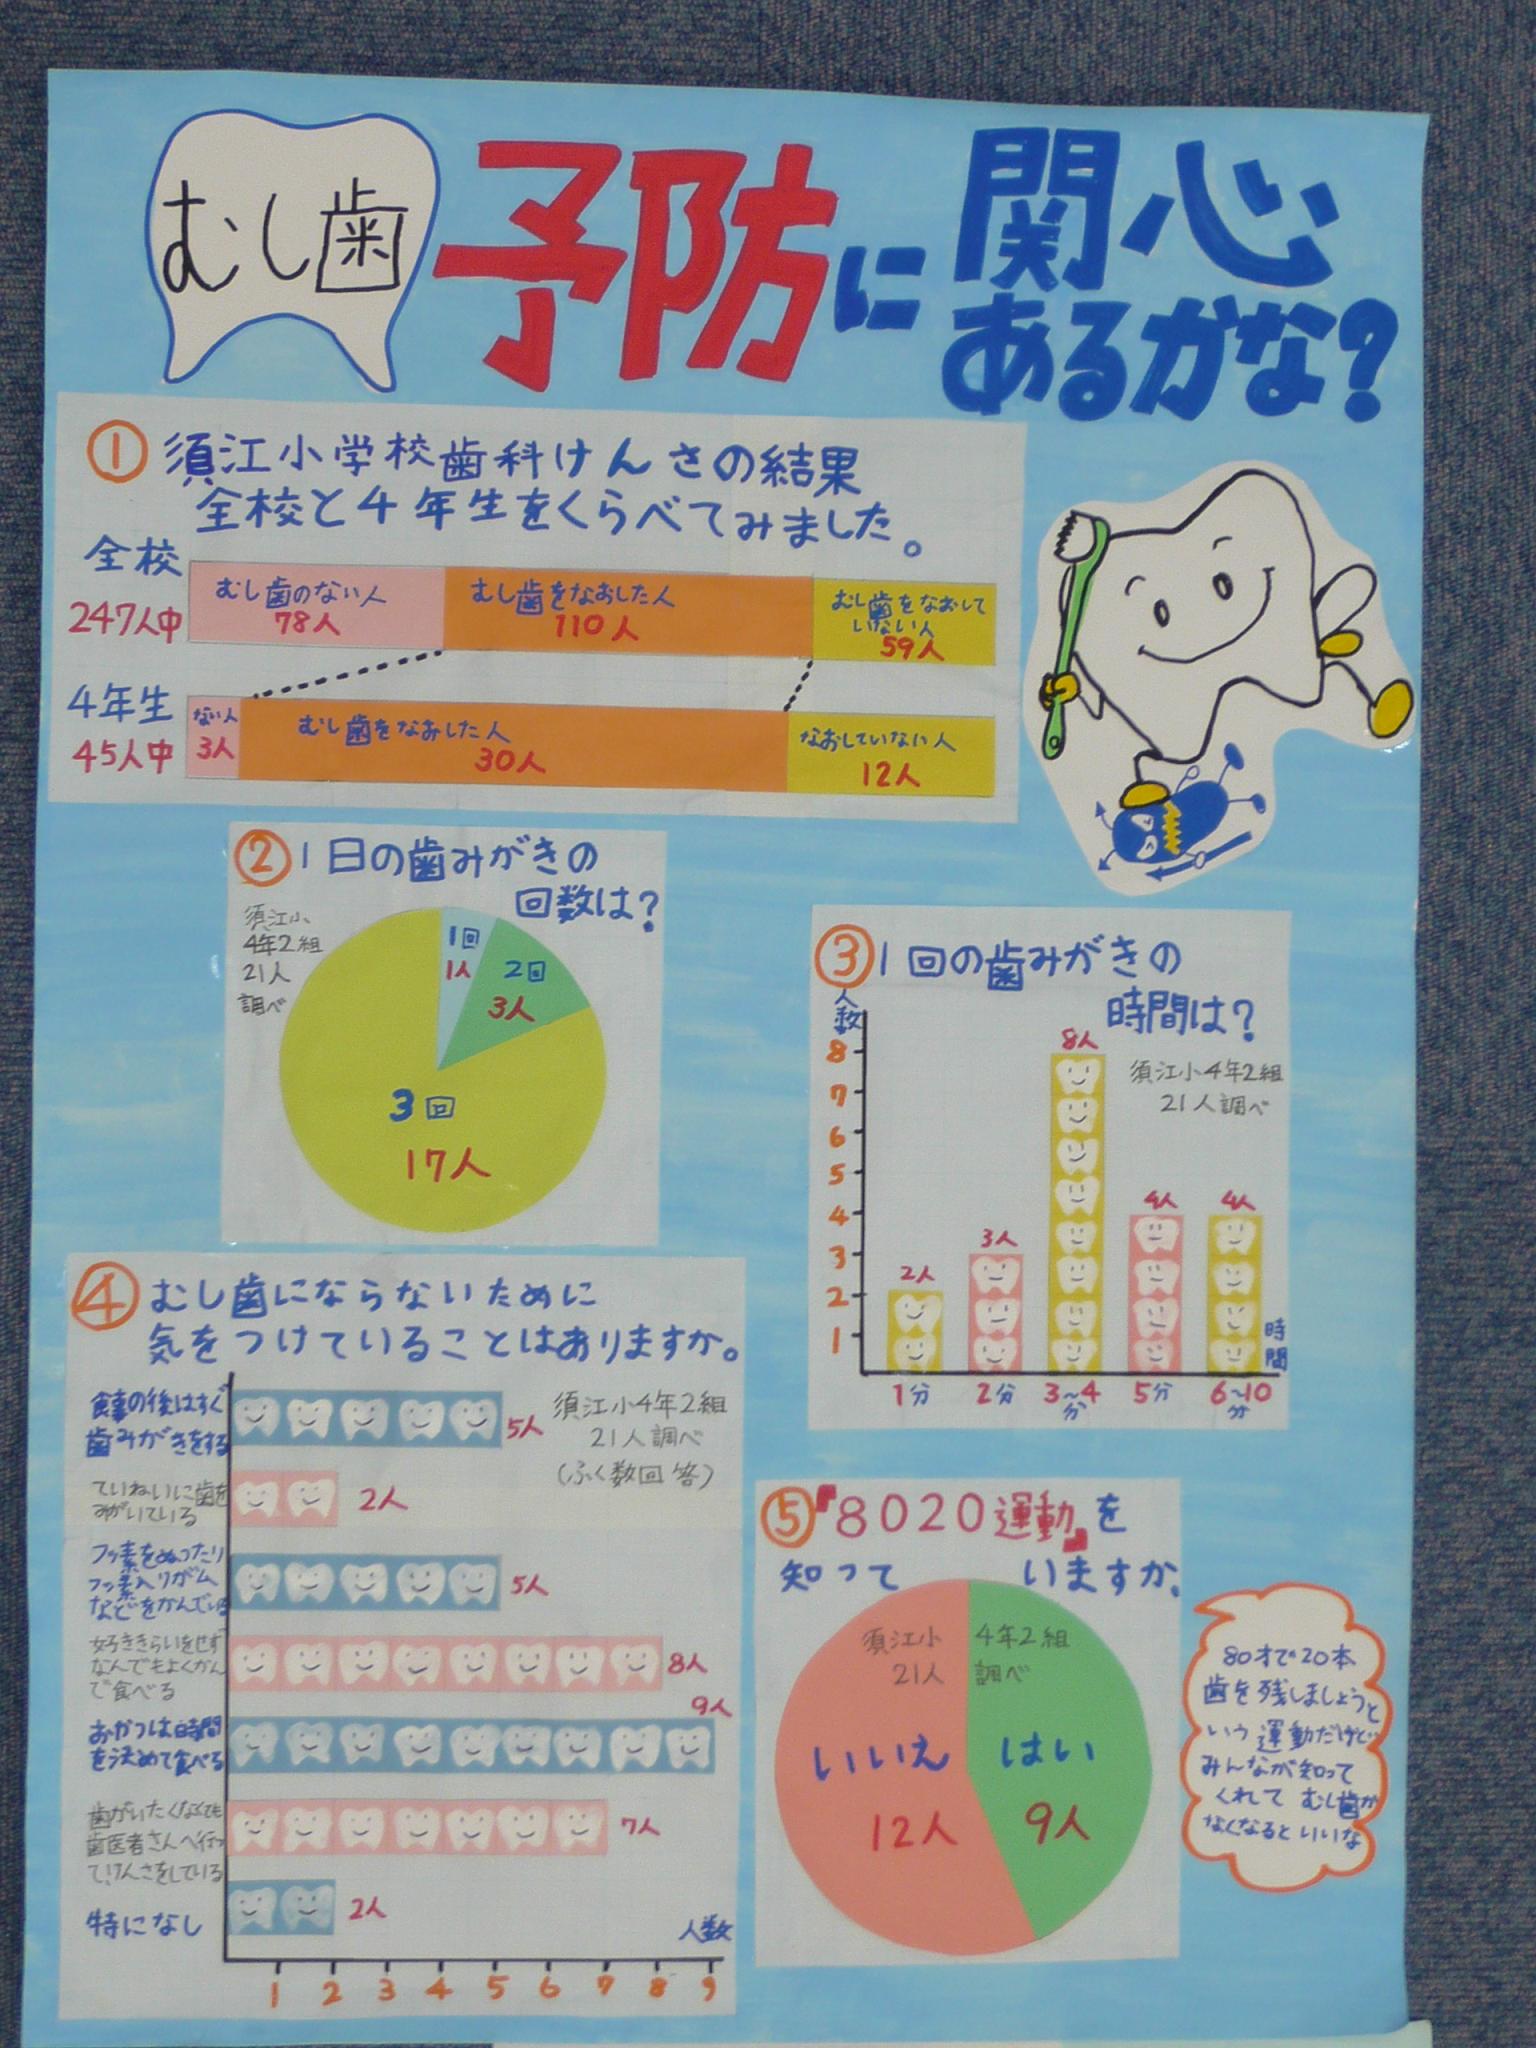 むし歯予防に関心
あるかな?
① 須江小学校歯科けんさの結果
全校と4年生をくらべてみました。
全校
247人中
むし歯のない人
78人
むし歯をなおした人
110人
むし歯をなおして
いない人
59人
4年生
45人中
ない人
3人
むし歯をなおした人
30人
なおしていない人
12人
② 1日の歯みがきの
回数は?
須江小
4年2組
21人
調べ
1回
1人
2回
3人
3回
17人
③ 1回の歯みがきの
時間は?
須江小4年2組
21人調べ
人数
8
7
6
5
4
3
2
1
2人
3人
8人
4人
4人
1分
2分
3~4分
5分
6~10分
時間
④ むし歯にならないために
気をつけていることはありますか。
須江小4年2組
21人調べ
(ふく数回答)
食事の後はすぐ
歯みがきをする
5人
ていねいに歯を
みがいている
2人
フッ素をぬったり
フッ素入りガム
などをかんでいる
5人
好ききらいをせず
なんでもよくかん
で食べる
8人
おやつは時間
を決めて食べる
9人
歯がいたくなくても
歯医者さんへ行っ
てけんさをしている
7人
特になし
2人
人数
1 2 3 4 5 6 7 8 9
⑤『8020運動』を
知って いますか。
須江小 4年2組
21人 調べ
いいえ
12人
はい
9人
80才で20本
歯を残しましょうと
いう運動だけど
みんなが知って
くれて むし歯が
なくなるといいな